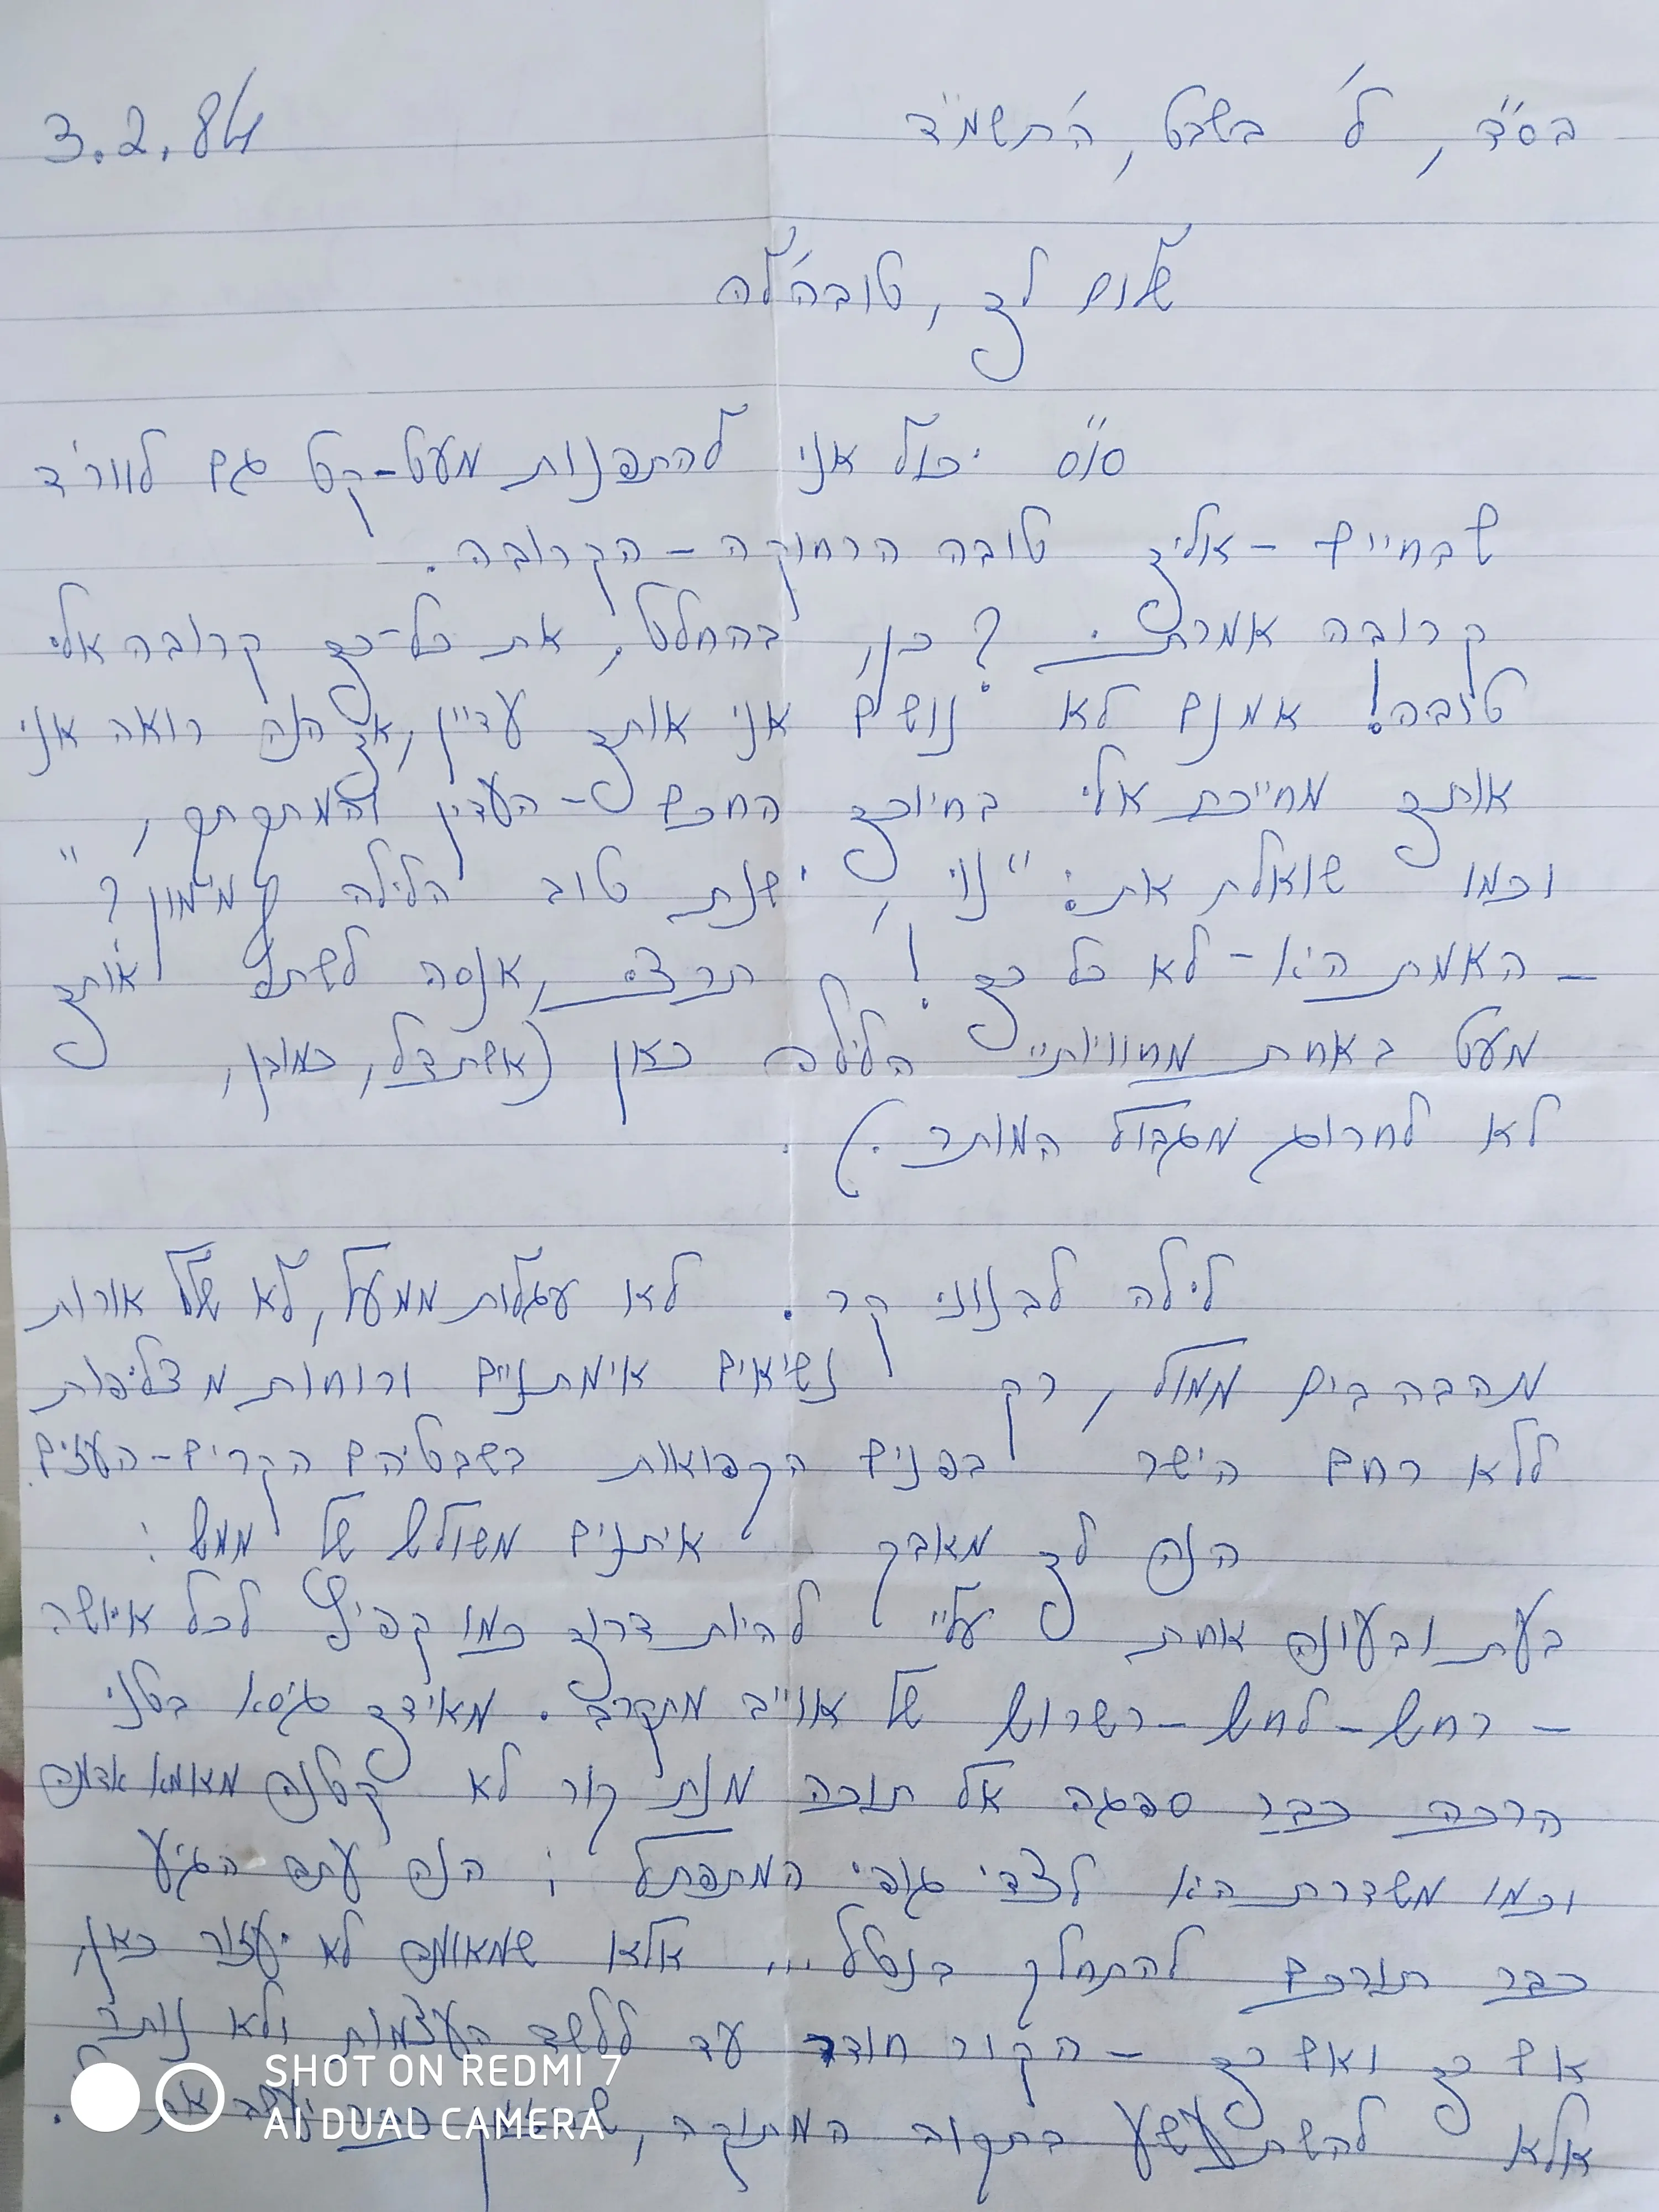 בס"ד, ל' בשבט, ה'תשמ"ד 3.2.84
שלום לך, טובה'לה
סו"ס יכול אני להתפנות מעט-קט גם לוורד
שבחיים - אליך טובה הרחוקה - הקרובה.
קרובה אמרתי? כן, בהחלט, את כל-כך קרובה אלי
טובה! אמנם לא נושם אני אותך עדיין, אך הנה רואה אני
אותך מחייכת אלי בחיוכך החכם - העדין והמתקתק,
וכמו שואלת את: "נוי, ישנת טוב הלילה מימון?"
- האמת היא - לא כל כך! תרצי, אנסה לשתף אותך
מעט באחת מחוויותיי הלילה כאן (אשתדל, כמובן,
לא לחרוג מגבול המותר.).
לילה לבנוני קר. לא עגלות ממעל, לא שלל אורות
מהבהבים ממול, רק נשיאים אימתניים ורוחות מצליפות
ללא רחם הישר בפנים הקפואות בשבטיהם הקרים-העזים.
הנה לך מאבק איתנים משולש של ממש:
בעת ובעונה אחת עליי להיות דרוך כמו קפיץ לכל איושה
- רחש-לחש-רשרוש של אוייב מתקרב. מאידך גיסא בטני
הרכה כבר ספגה אל תוכה מנת קור לא קטנה מצומא אדמה
וכמו משדרת היא לצדי גופי המתפתל; הנה עתה הגיע
כבר תורכם להתחלק בנטל... אלא שמאומה לא יעזור כאן,
אם כך ואם כך - הקור חודר עד ללשד העצמות ולא נותר
אלא להשתעשע בתקוה המתוקה,
SHOT ON REDMI 7
AI DUAL CAMERA